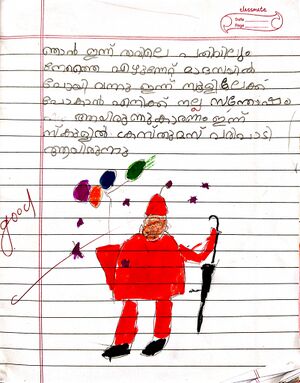 classmate
Date
Page
ഞാൻ ഇന്ന് രാവിലെ പതിവിലും
നേരത്തെ എഴുന്നേറ്റ് മദ്രസയിൽ
പോയി വന്നു ഇന്ന് സ്കൂളിലേക്ക്
പോകാൻ എനിക്ക് നല്ല സന്തോഷം
ആയിരുന്നു കാരണം ഇന്ന്
സ്കൂളിൽ ക്രിസ്തുമസ് പരിപാടി
ആയിരുന്നു
good